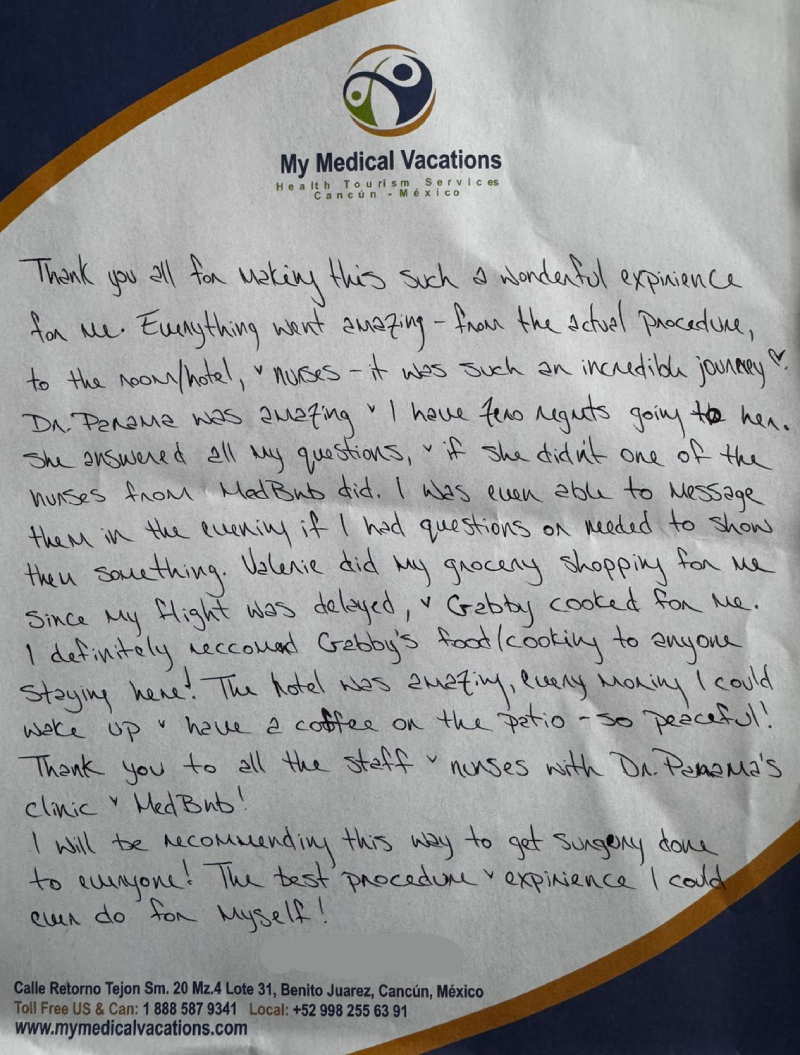 My Medical Vacations
Health Tourism Services
Cancún - México
Thank you all for making this such a wonderful expirience
for me. Everything went amazing - from the actual procedure,
to the room/hotel, & nurses - it was such an incredible journey ♡.
Dr. Panama was amazing & I have zero regrets going to her.
She answered all my questions, & if she didn't one of the
nurses from MedBnb did. I was even able to message
them in the evening if I had questions or needed to show
them something. Valerie did my grocery shopping for me
since my flight was delayed, & Gabby cooked for me.
I definitely reccomend Gabby's food/cooking to anyone
staying here! The hotel was amazing, every morning I could
wake up & have a coffee on the patio - so peaceful!
Thank you to all the staff & nurses with Dr. Panama's
clinic & MedBnb!
I will be recommending this way to get surgery done
to everyone! The best procedure & expirience I could
ever do for myself!
Calle Retorno Tejon Sm. 20 Mz.4 Lote 31, Benito Juarez, Cancún, México
Toll Free US & Can: 1 888 587 9341 Local: +52 998 255 63 91
www.mymedicalvacations.com